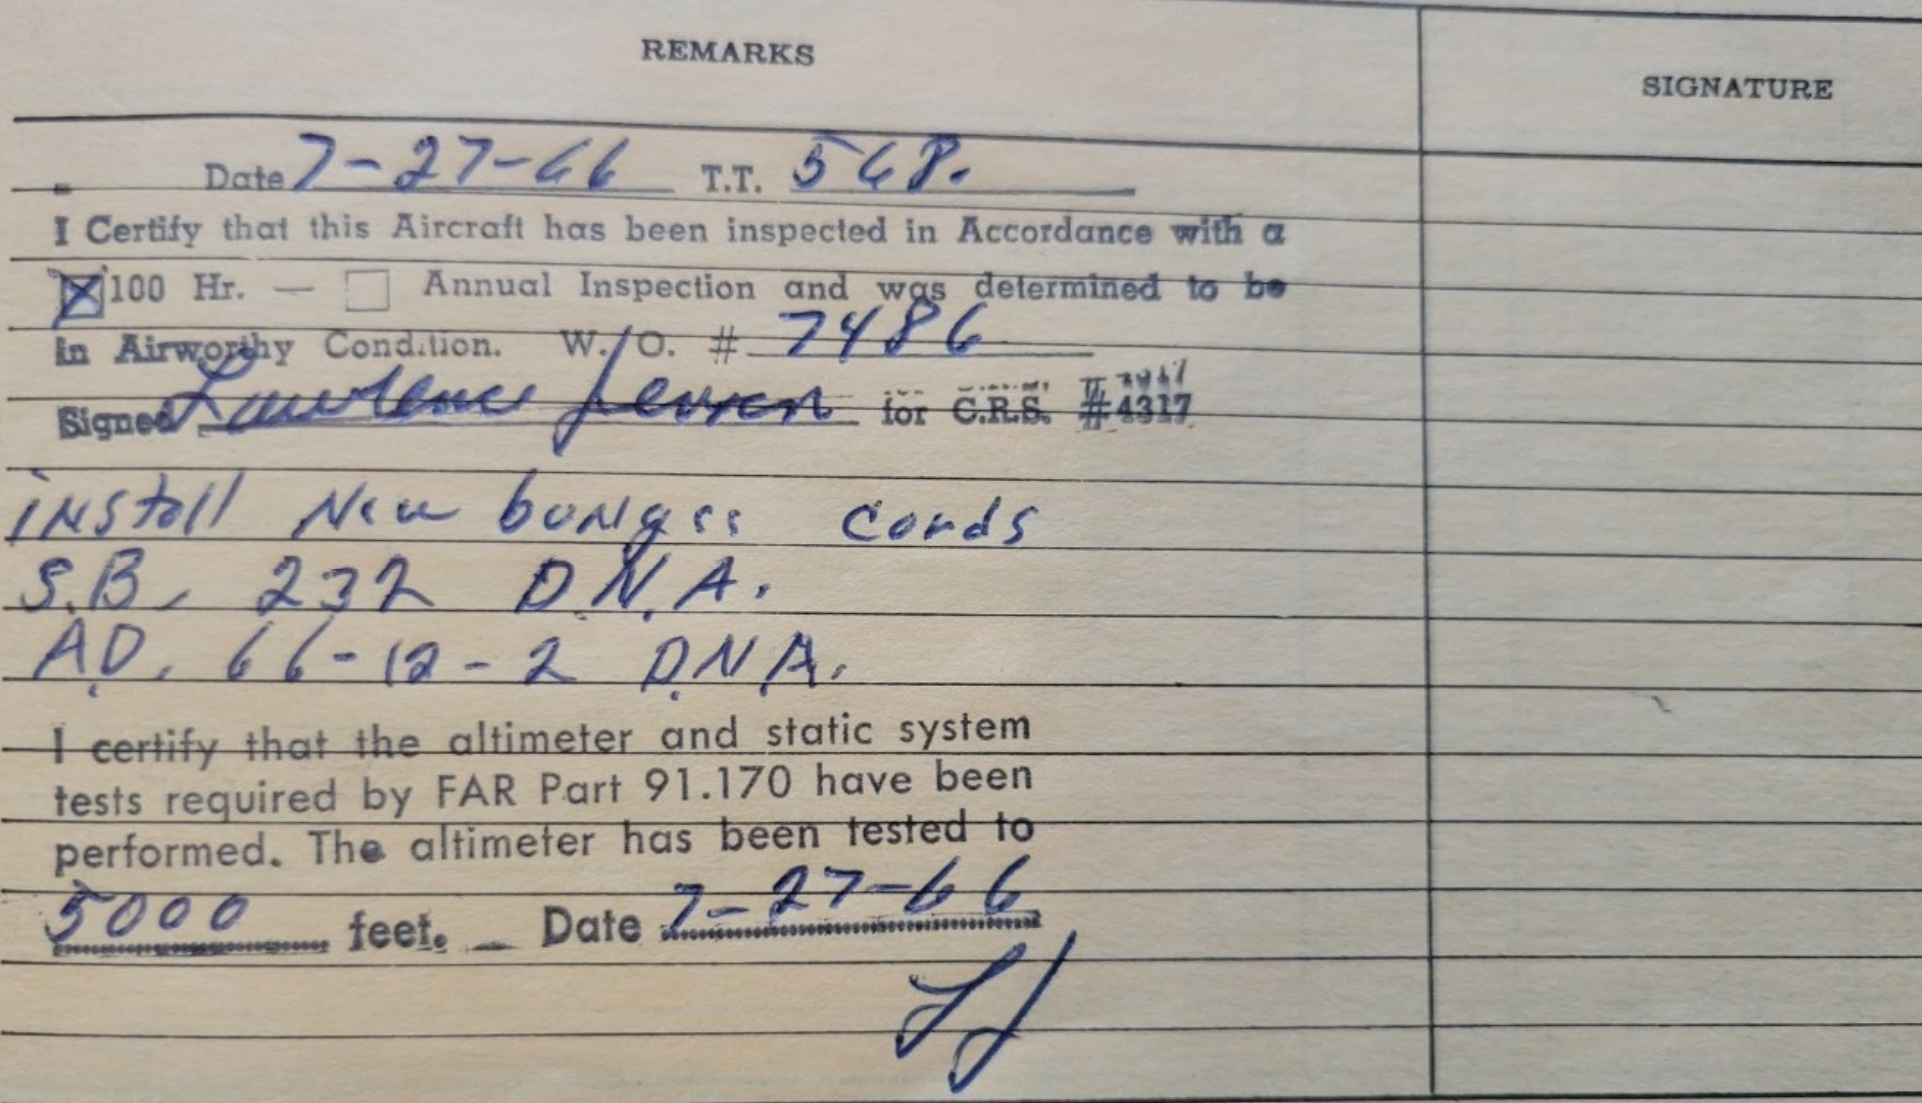 REMARKS
SIGNATURE
Date 7-27-66 T.T. 568.
I Certify that this Aircraft has been inspected in Accordance with a
100 Hr. — Annual Inspection and was determined to be
in Airworthy Condition. W. O. # 7486
Signed Lawrence Jensen for C.R.S. #4317
install New bungee cords
S.B. 232 D.N.A.
A.D. 66-12-2 D.N.A.
I certify that the altimeter and static system
tests required by FAR Part 91.170 have been
performed. The altimeter has been tested to
5000 feet. _ Date 7-27-66
LJ